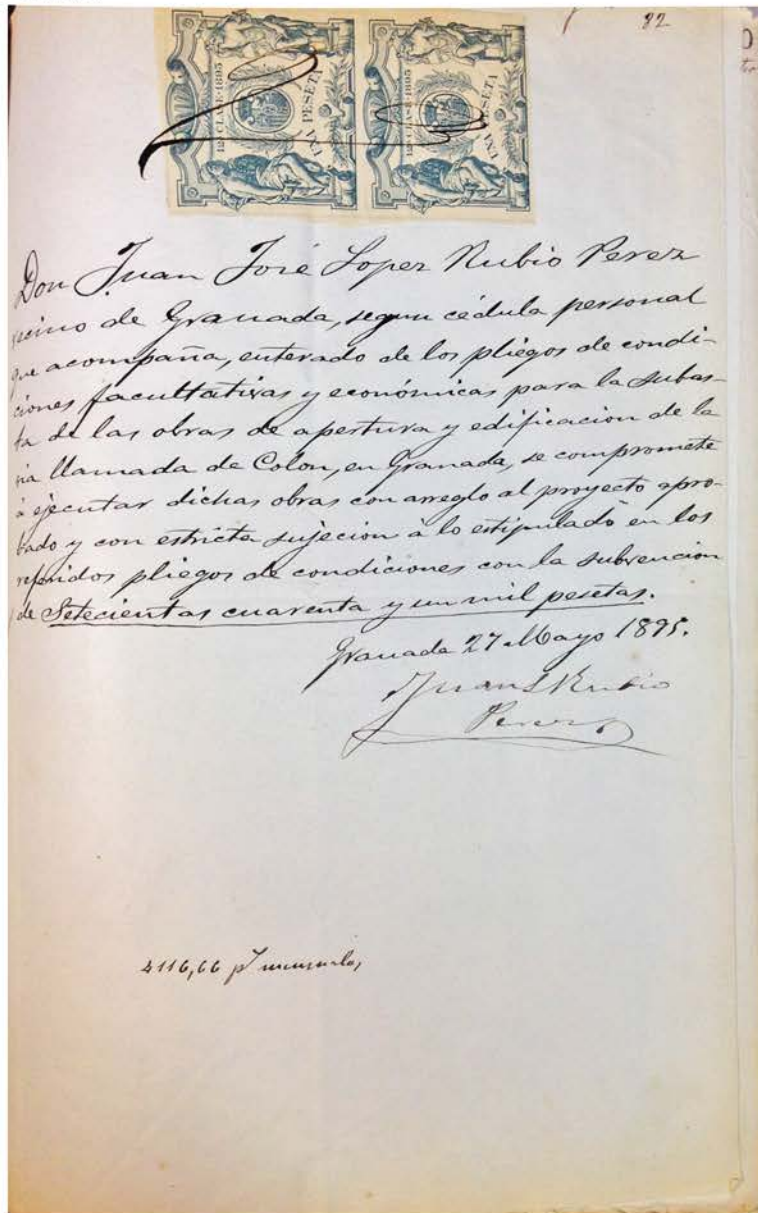 82
12ª CLASE-1895
UNA PESETA
12ª CLASE-1895
UNA PESETA
Don Juan José Lopez Rubio Perez
vecino de Granada, segun cédula personal
que acompaña, enterado de los pliegos de condi-
ciones facultativas y económicas para la subas-
ta de las obras de apertura y edificacion de la
via llamada de Colon, en Granada, se compromete
á ejecutar dichas obras con arreglo al proyecto apro-
bado y con estricta sujecion á lo estipulado en los
referidos pliegos de condiciones con la subvencion
de Setecientas cuarenta y un mil pesetas.
Granada 27 Mayo 1895.
Juan L Rubio
Perez
4116,66 pts mensuales